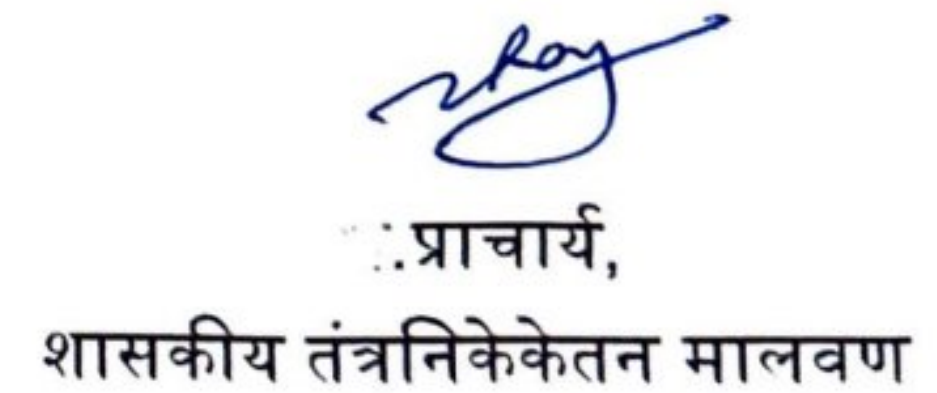 प्राचार्य,
शासकीय तंत्रनिकेकेतन मालवण